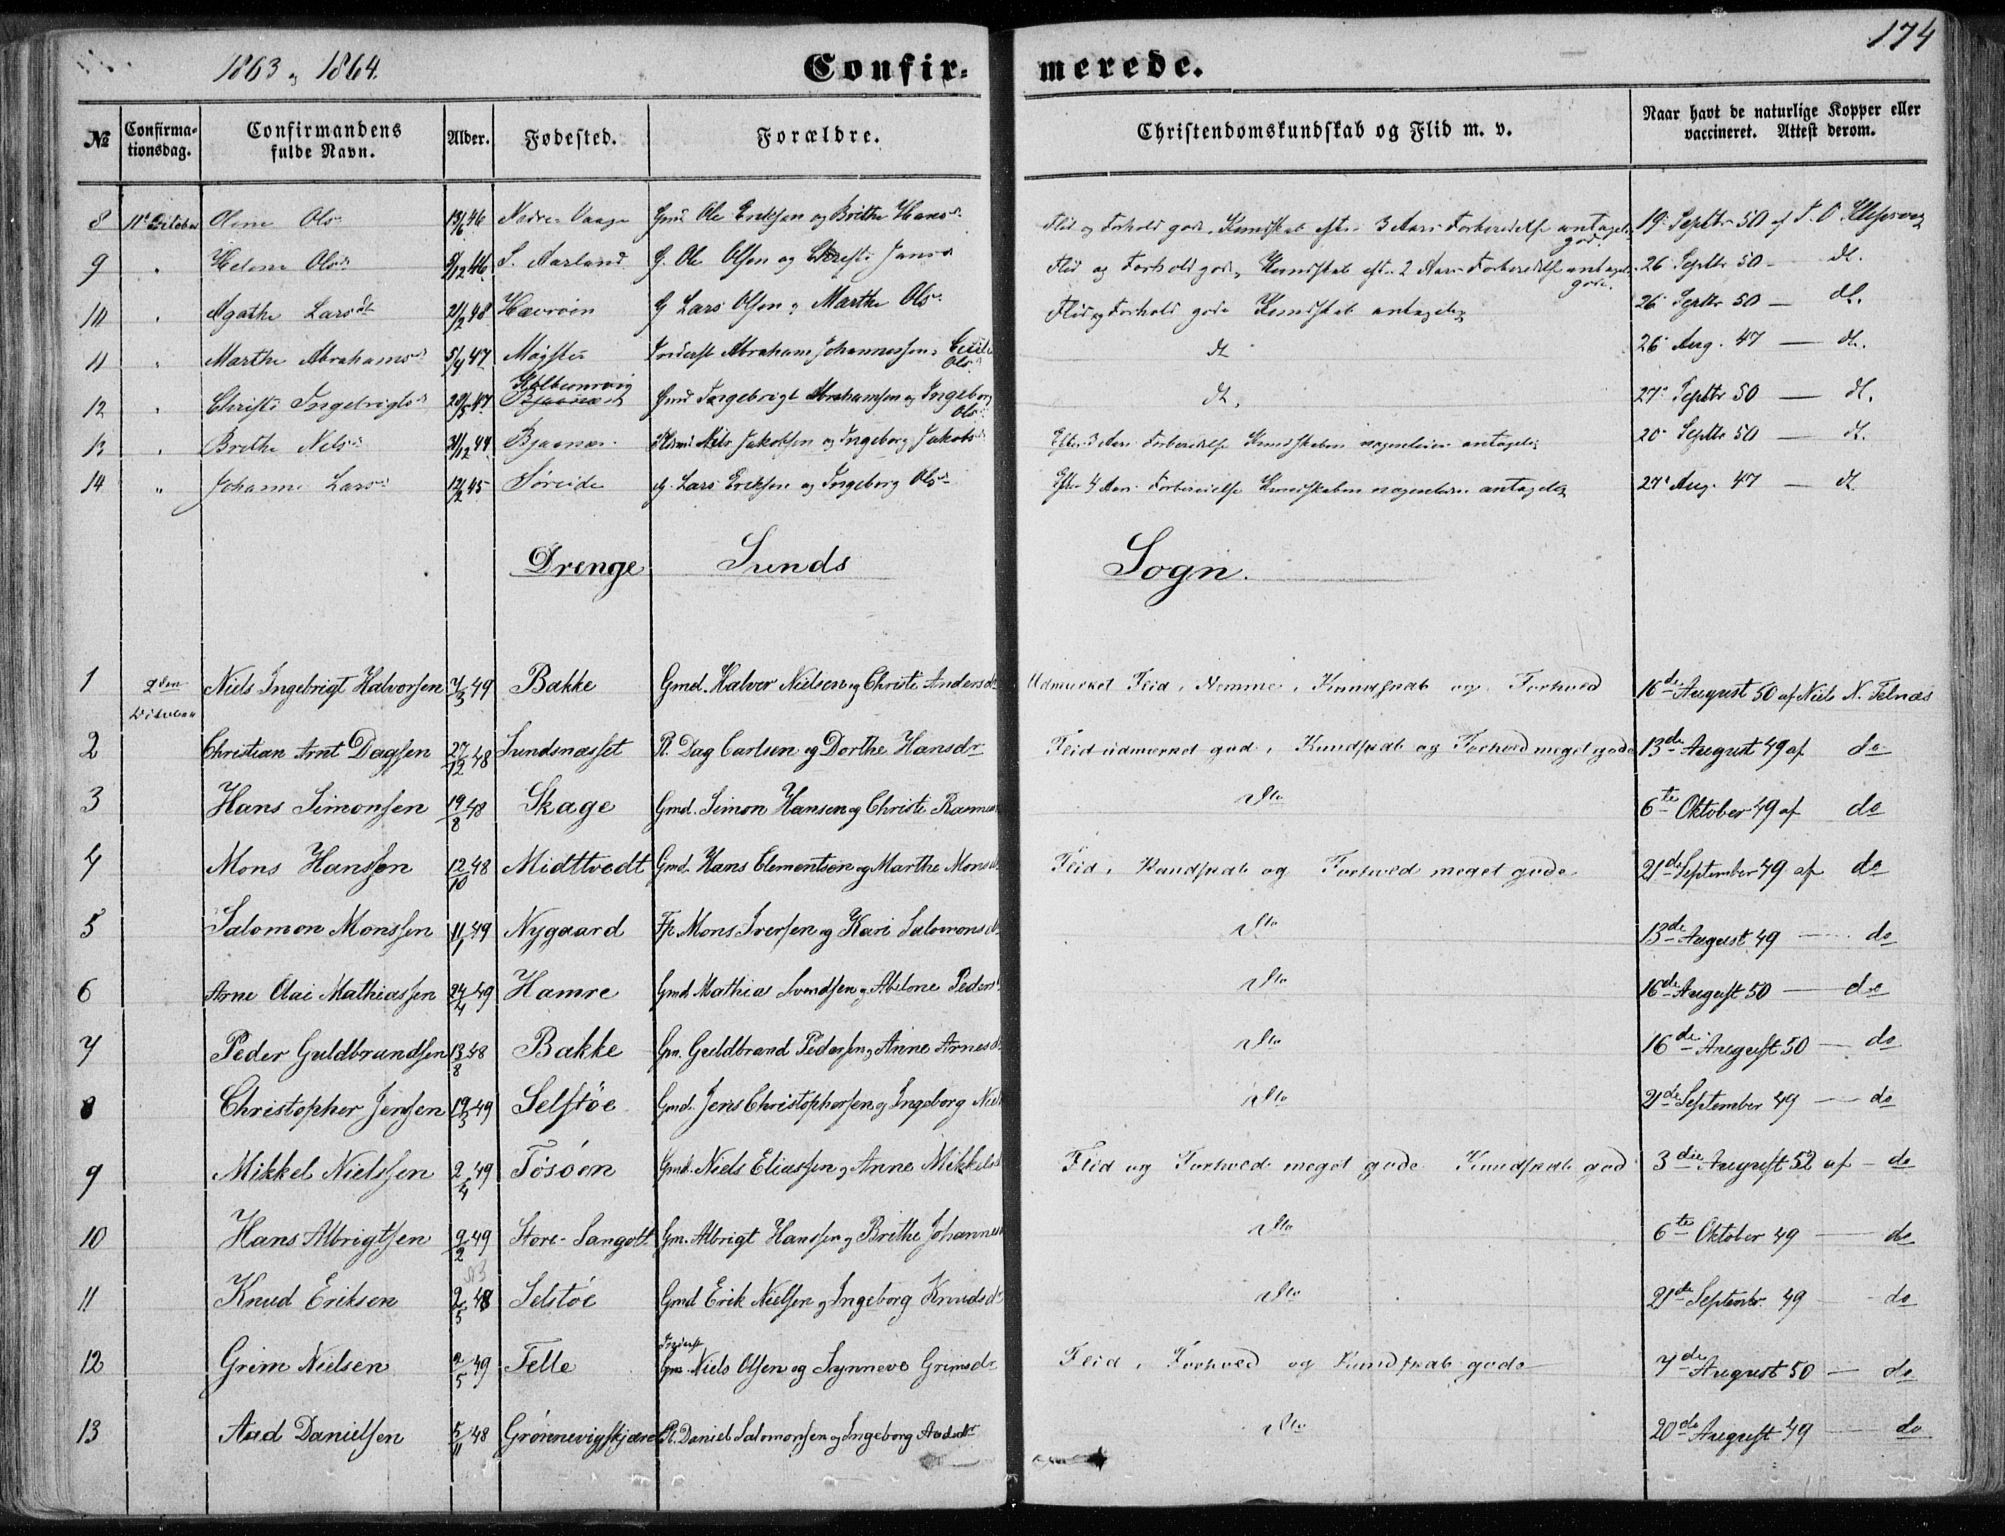 1863 og 1864.
Confirmerede.
174
№ Confirmationsdag. Confirmandens fulde Navn. Alder. Fødested. Forældre. Christendomskundskab og Flid m. v. Naar havt de naturlige Kopper eller vaccineret. Attest derom.
8 11t Oktober Oline Olsd 13/6 46 Nedre Vaage Gmd Ole Eriksen og Brithe Hansd Flid og Forhold gode, Kundskab efter 3 Aars Forberedelse antagelig 19 Septbr 50 af
9 " Helene Olsd 9/12 46 S. Aarland G. Ole Olsen og Christi Jansd Flid og Forhold gode, Kundskab efter 2 Aars Forberedelse antagelig 26 Septbr 50 — dt.
10 " Agathe Larsdtr 21/2 48 Havröen G Lars Olsen og Marthe Olsd Flid og Forhold gode Kundskab antagelig 26 Septbr 50 — dt.
11 " Marthe Abrahamsd 5/4 47 Møgster Inderst Abraham Johannessen, Cecilie Olsd dt 26 Aug. 47 — dt.
12 " Christi Ingebrigtsd 20/5 47 Gmd Ingebrigt Abrahamsen og Ingeborg Olsd dt. 27 Septbr 50 — dt.
13 " Brithe Nelsd 31/12 47 Bjaanæs Nils Jakobsen og Ingeborg Jakobsd Efter 3 Aars Forberedelse Kundskaben nogenlunde antagelig 20 Septbr 50 — dt.
14 " Johanne Larsd 12/2 45 Søreide G. Lars Eriksen og Ingeborg Olsd Efter 4 Aars Forberedelse Kundskaben nogenlunde antagelig 27 Aug. 47 — dt.
Drenge Sunds Sogn.
1 2den Oktober Niels Ingebrigt Halvorsen 7/3 49 Bakke Gmd. Halvor Nielsen og Christi Andersdr Udmærket Flid, Nemme, Kundskab og Forhold 16de August 50 af Niels N. Telnæs
2 Christian Arnt Dagssen 27/12 48 Sundsnæsset P. Dag Carlsen og Dorthe Hansdr Flid udmærket god, Kundskab og Forhold meget gode 13de August 49 af do
3 Hans Simonsen 19/8 48 Skage Gmd. Simon Hansen og Christi Rasmus dto 6te Oktober 49 af do
4 Mons Hanssen 12/10 48 Midttvedt Gmd. Hans Clementsen og Marthe Monsd Flid, Kundskab og Forhold meget gode 21de September 49 af do
5 Salomon Monssen 11/1 49 Nygaard Fp Mons Iversen og Kari Salomonsd dto 13de August 49 — do
6 Arne Olai Mathiassen 24/4 49 Hamre Gmd Mathias Svendsen og Abelone Pedersd dto 16de August 50 — do
7 Peder Guldbrandsen 13/8 48 Bakke Gm. Guldbrand Pedersen og Anne Arnesd dto 16de August 50 — do
8 Christopher Jenssen 19/3 49 Selstöe Gmd. Jens Christophersen og Ingeborg Niels dto 21de September 49 — do
9 Mikkel Nielssen 2/4 49 Tøsöen Gmd. Niels Eliassen og Anne Mikkelsd Flid og Forhold meget gode Kundskab god 3die August 52 af — do
10 Hans Albrigtsen 9/2 49 Store-Sangolt Gm. Albrigt Hanssen og Brithe Johannes dto 6te Oktober 49 — do
11 Knud Eriksen 2/5 48 Selstöe Gmd Erik Nielsen og Ingeborg Knudsdr dto 21de Septembr. 49 — do
12 Grim Nielsen 2/5 49 Telle Inderst Gm. Niels Olsen og Synneve Grimsdr Flid, Forhold og Kundskab gode 7de August 50 — do
13 Aad Danielsen 5/11 48 Grønnevigskjæret P. Daniel Salomonsen og Ingeborg Aadsdtr dto 20de August 49 — do